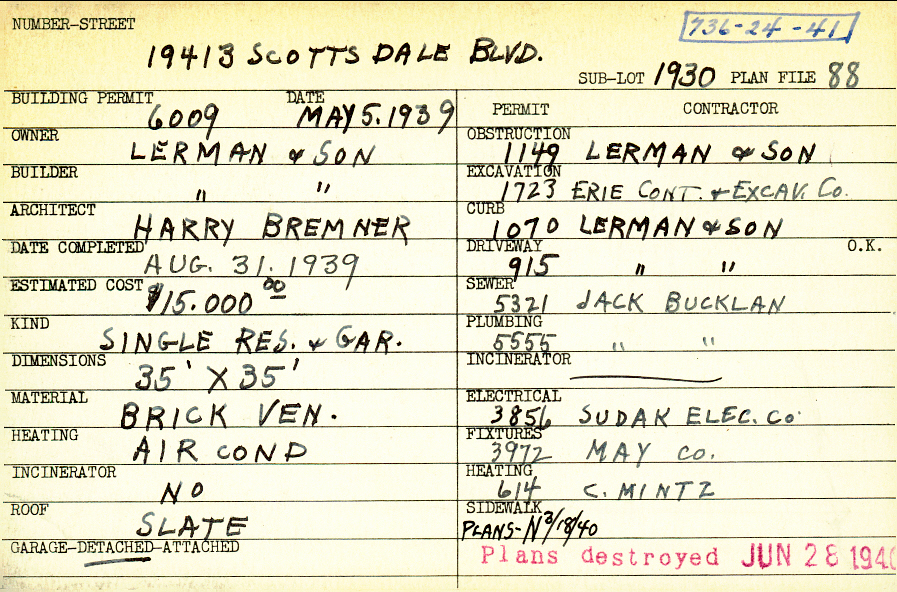 NUMBER-STREET
736-24-41
19413 SCOTTSDALE BLVD.
SUB-LOT 1930 PLAN FILE 88
BUILDING PERMIT DATE
6009 MAY 5. 1939
OWNER
LERMAN & SON
BUILDER
" "
ARCHITECT
HARRY BREMNER
DATE COMPLETED
AUG. 31. 1939
ESTIMATED COST
$15.000 00
KIND
SINGLE RES. & GAR.
DIMENSIONS
35' X 35'
MATERIAL
BRICK VEN.
HEATING
AIR COND
INCINERATOR
NO
ROOF
SLATE
GARAGE-DETACHED-ATTACHED
PERMIT CONTRACTOR
OBSTRUCTION
1149 LERMAN & SON
EXCAVATION
1723 ERIE CONT. & EXCAV. Co.
CURB
1070 LERMAN & SON
DRIVEWAY O.K.
915 " "
SEWER
5321 JACK BUCKLAN
PLUMBING
5555 " "
INCINERATOR
ELECTRICAL
3856 SUDAK ELEC. Co.
FIXTURES
3972 MAY CO.
HEATING
614 C. MINTZ
SIDEWALK
PLANS-N 3/18/40
Plans destroyed JUN 28 1940